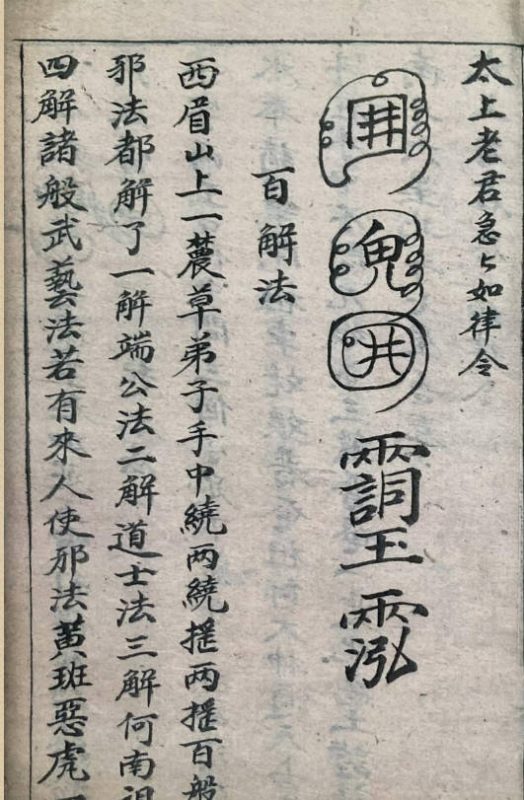 太上老君急々如律令
井 鬼 井 玉
百解法
西眉山上一蕽草弟子手中繞两繞提两提百般
邪法都解了一解端公法二解道士法三解何南
四解諸般武藝法若有來人使邪法黄班惡虎